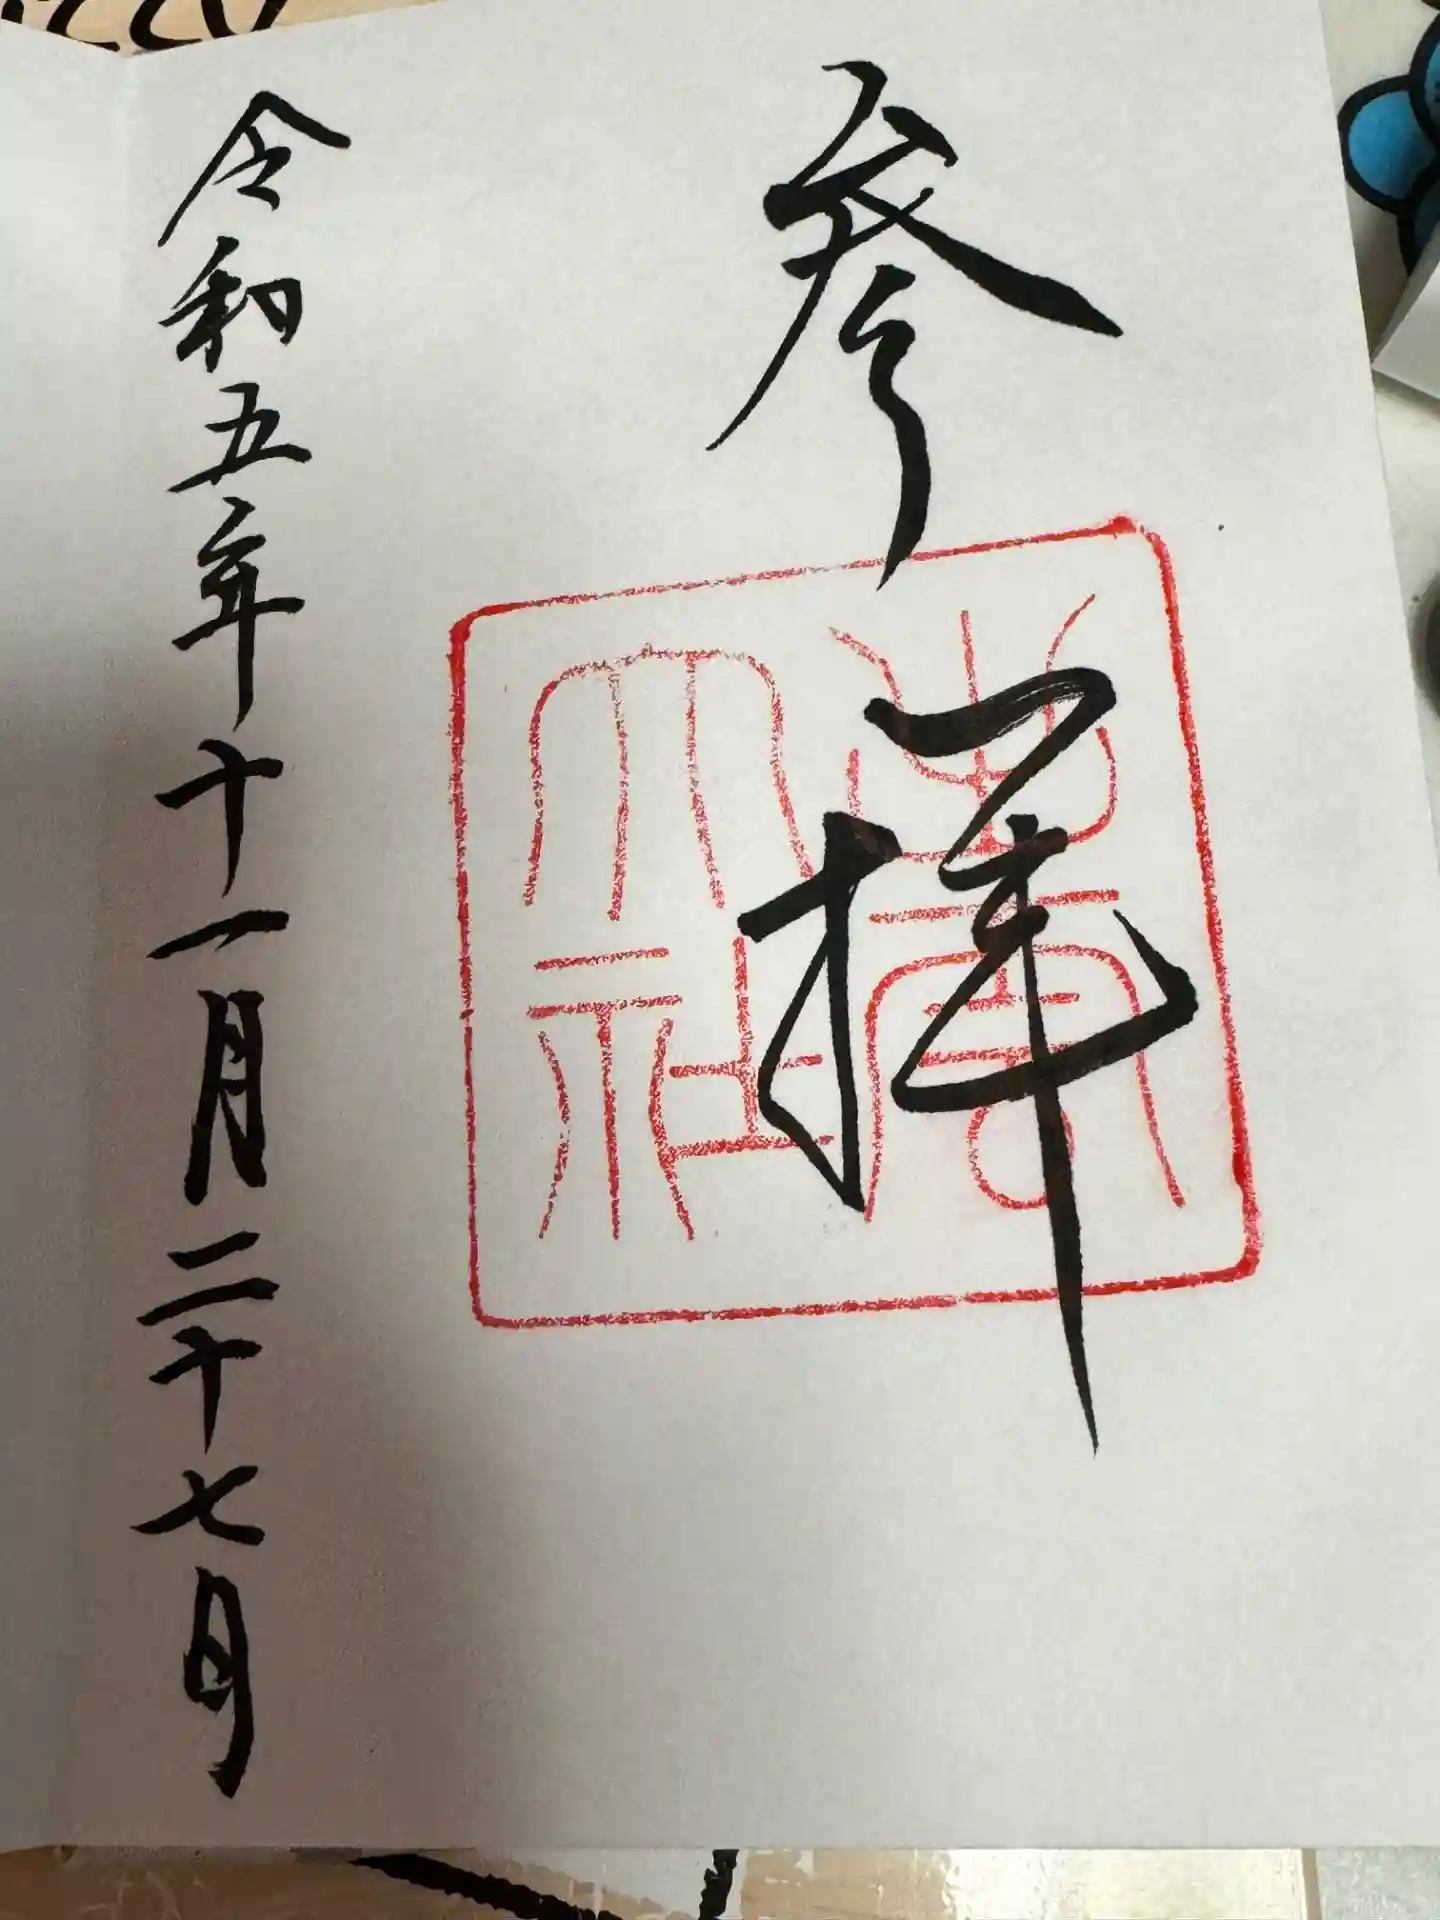 参拝
出雲
大社
令和五年十一月二十七日